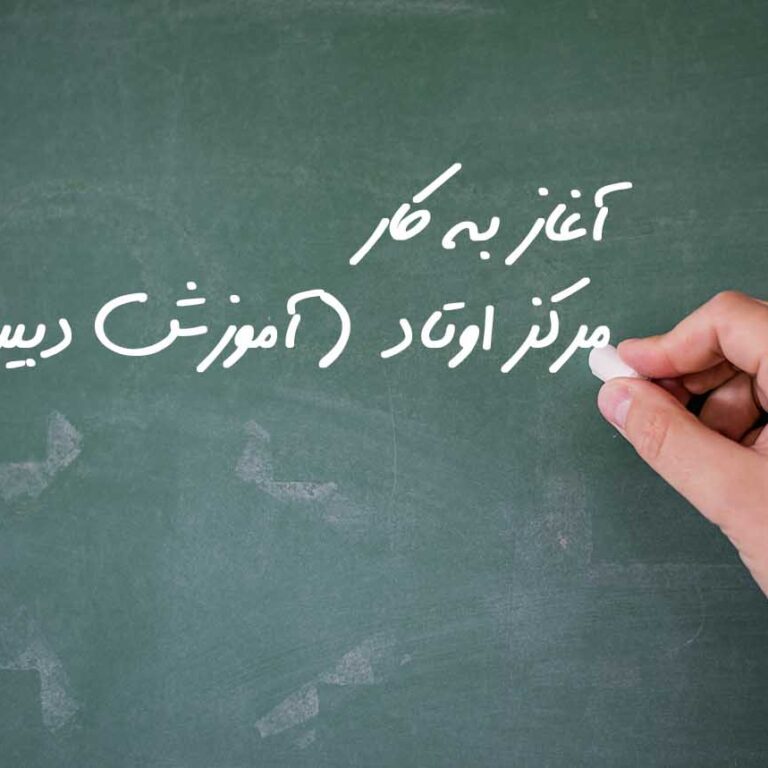 آغاز به کار
مرکز اوتاد (آموزش)